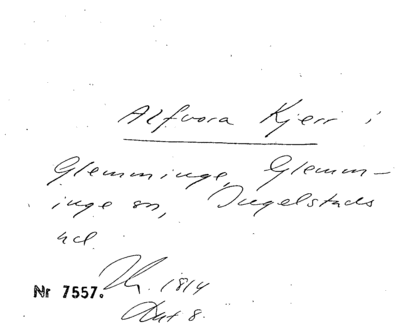 Alfvora Kjerr i
Glemminge, Glemm-
inge sn, Ingelstads
hd.
Nr 7557. 1814
8.